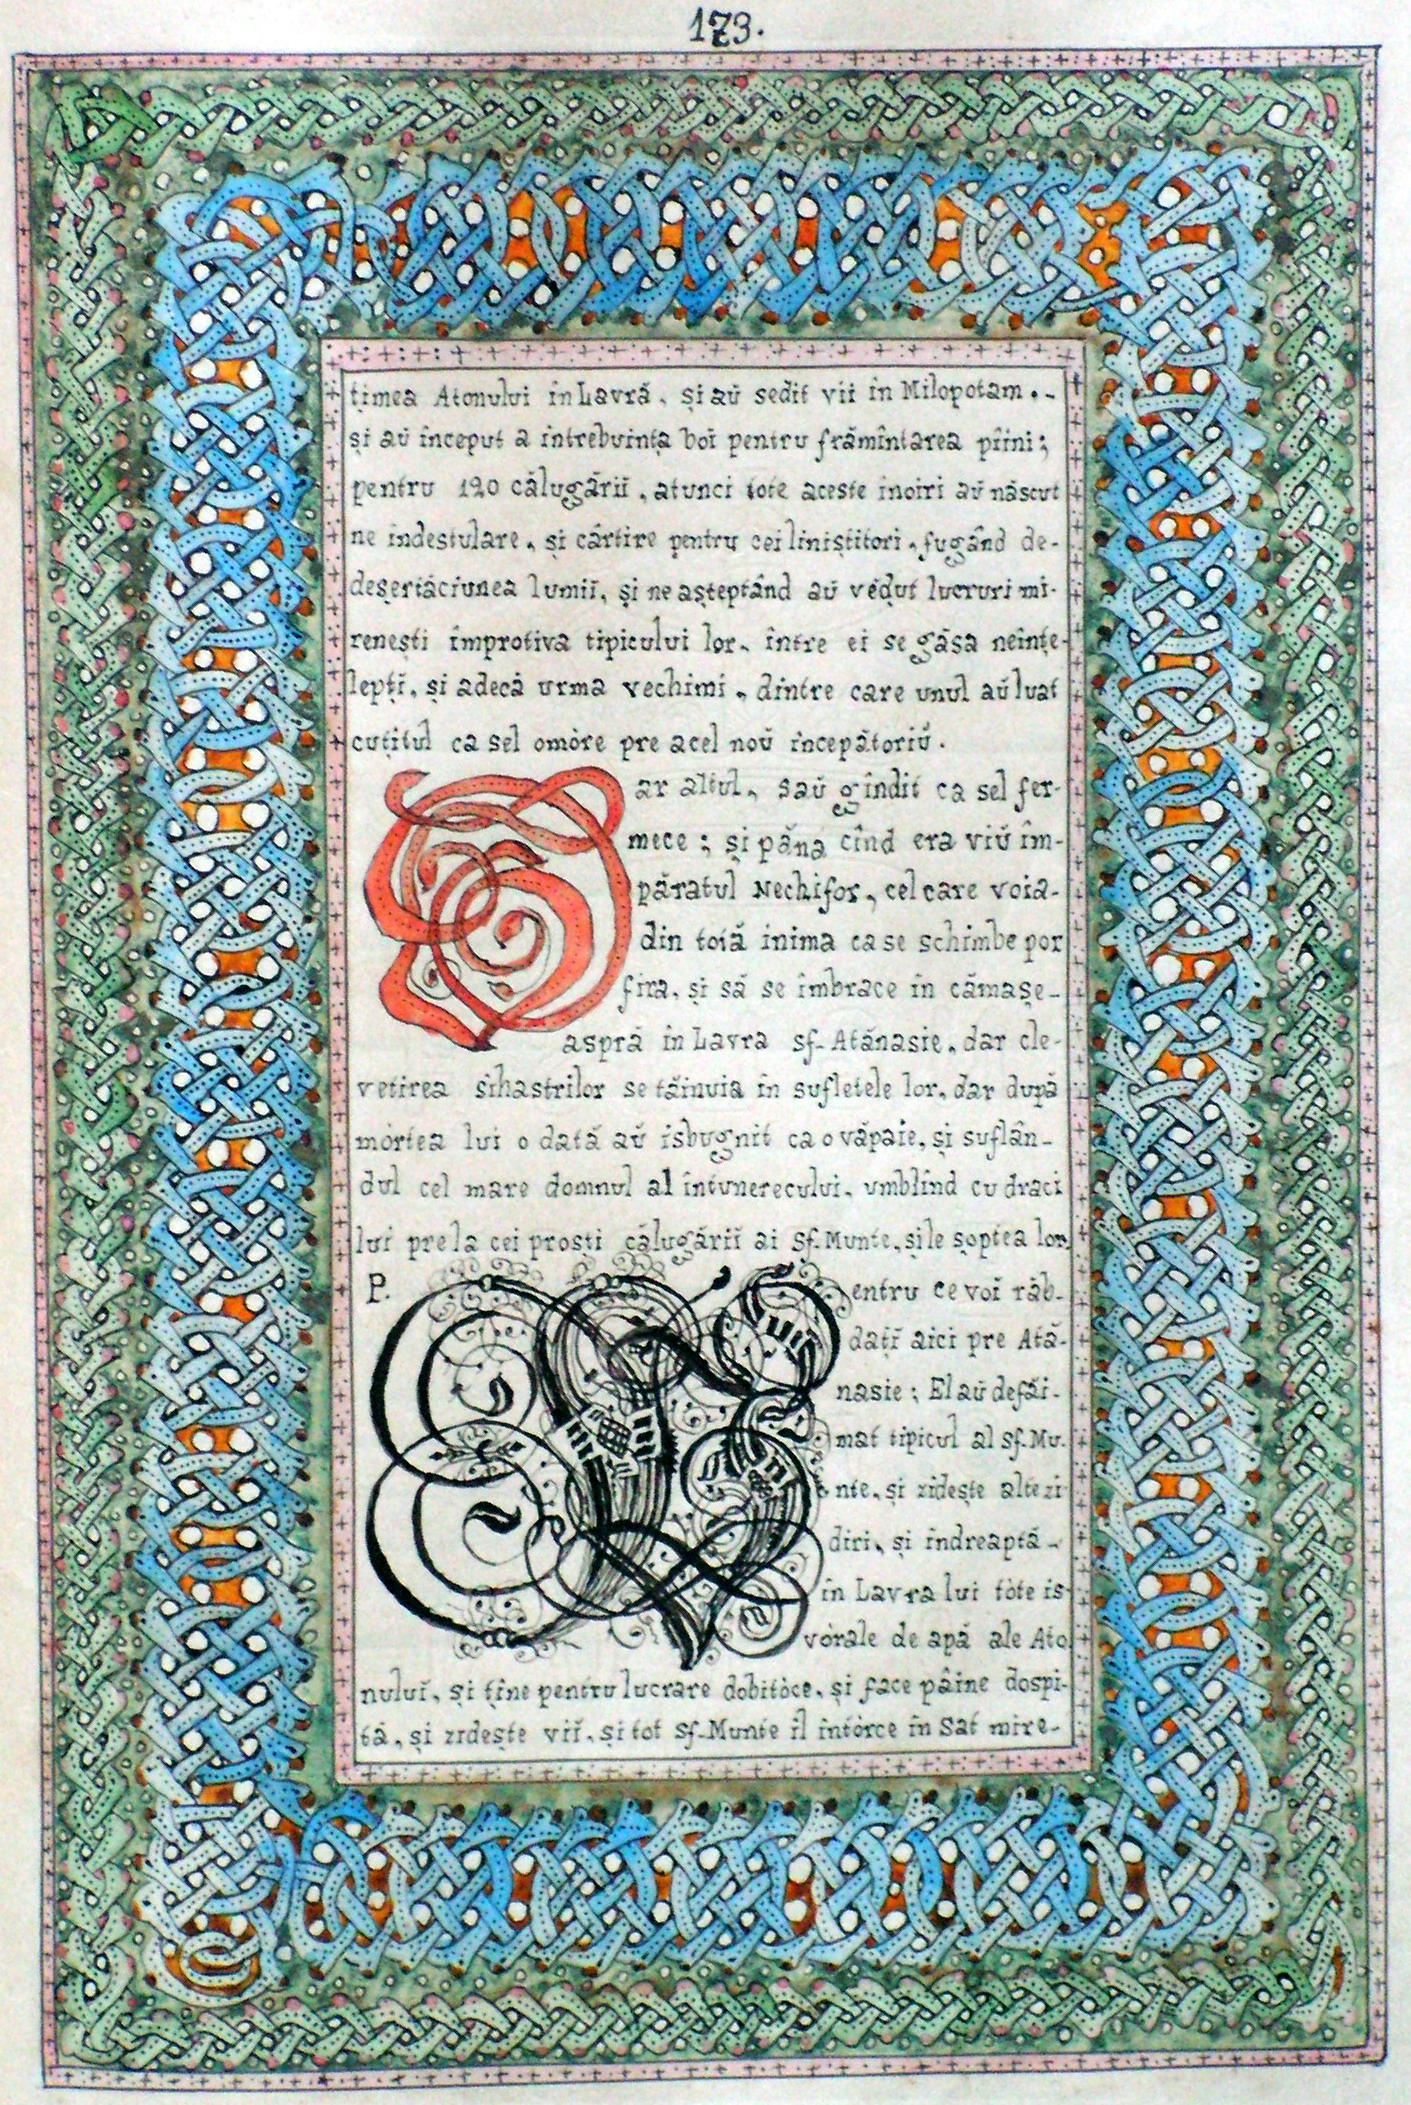 173.
țimea Atonului în Lavră, și aŭ sedit vii în Milopotam.-
și aŭ început a întrebuința boĭ pentru frămîntarea pîini;
pentru 120 călugăriĭ, atunci tote aceste inoiri aŭ născut
ne îndestulare, și cârtire pentru cei liniștitori, fugând de-
deșertăciunea lumiĭ, și ne așteptând aŭ vĕdut lucruri mi-
renești împrotiva tipicului lor, între ei se găsa neînțe-
lepțĭ, și adecă urma vechimi, dintre care unul aŭ luat
cuțitul ca sel omòre pre acel noŭ începătoriŭ.
ar altul, saŭ gîndit ca sel fer-
mece; și până cînd era viŭ îm-
păratul Nechifor, cel care voia-
din totă inima ca se schimbe por
fira, și să se îmbrace în cămașe-
aspră în Lavra sf. Atănasie, dar cle-
vetirea sihastrilor se tăinuia în sufletele lor, dar după
mórtea lui o dată aŭ isbugnit ca o văpaie, și suflân-
dul cel mare domnul al întunerecului, umblînd cu draci
lui pre la cei prosti călugăriĭ ai Sf. Munte, și le șoptea lor
P. entru ce voĭ răb-
dațĭ aici pre Ată-
nasie; El aŭ defăi-
mat tipicul al sf. Mu-
nte, și zidește alte zi
diri, și îndreaptă-
în Lavra lui tòte is-
vòrale de apă ale Ato
nuluĭ, și ține pentru lucrare dobitòce, și face pâine dospi-
tă, și zidește viĭ, și tot Sf. Munte îl întòrce în Sat mire-